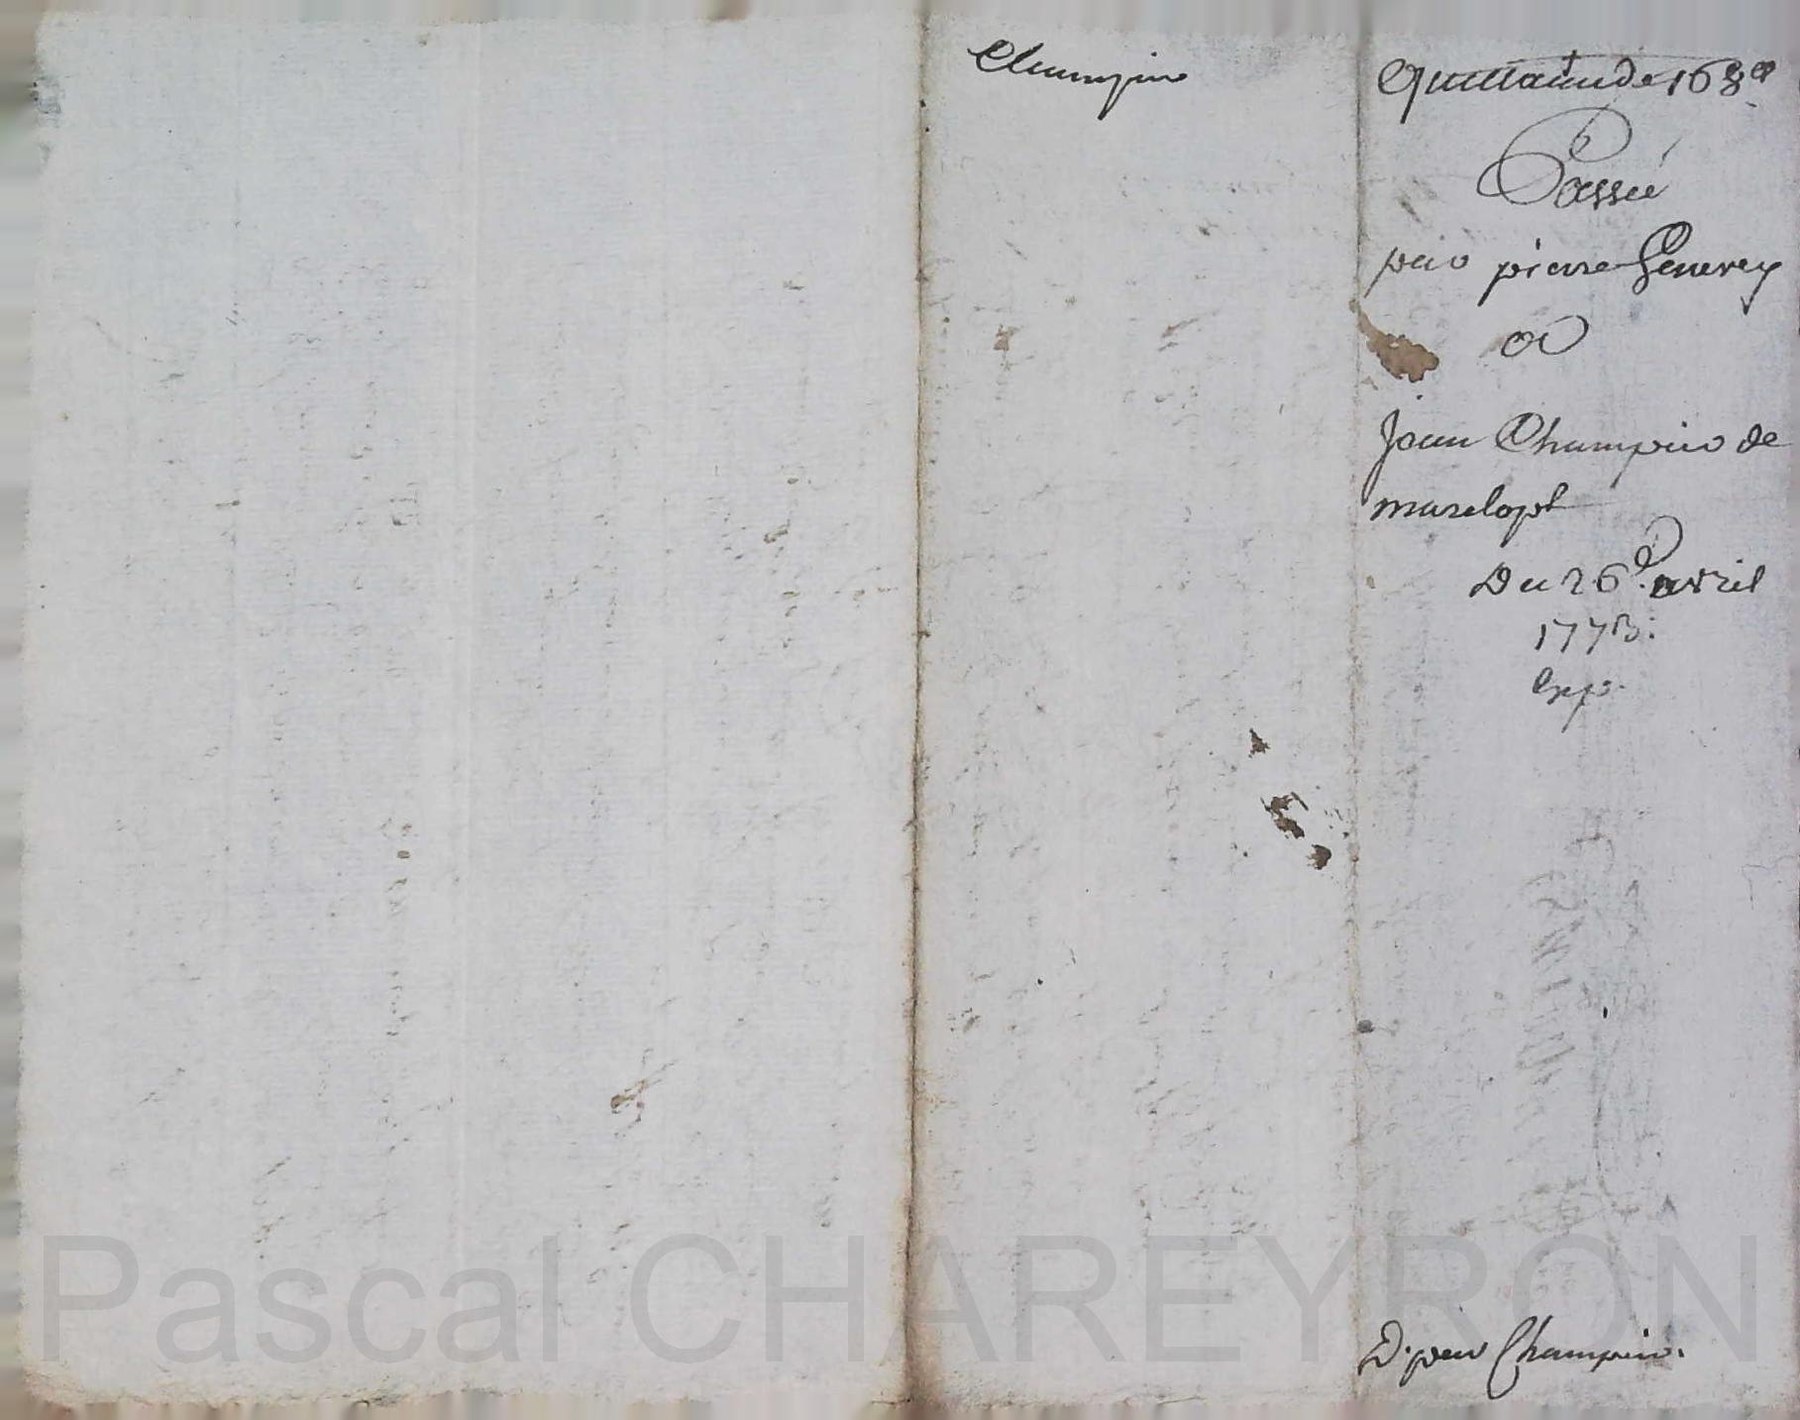 Champin
Quittance de 168 #
Passée
par pierre Generey
a
Jean Champin de
marclopt
Du 26e. avril
1773.
Exp.
D. pour Champin.
Pascal CHAREYRON